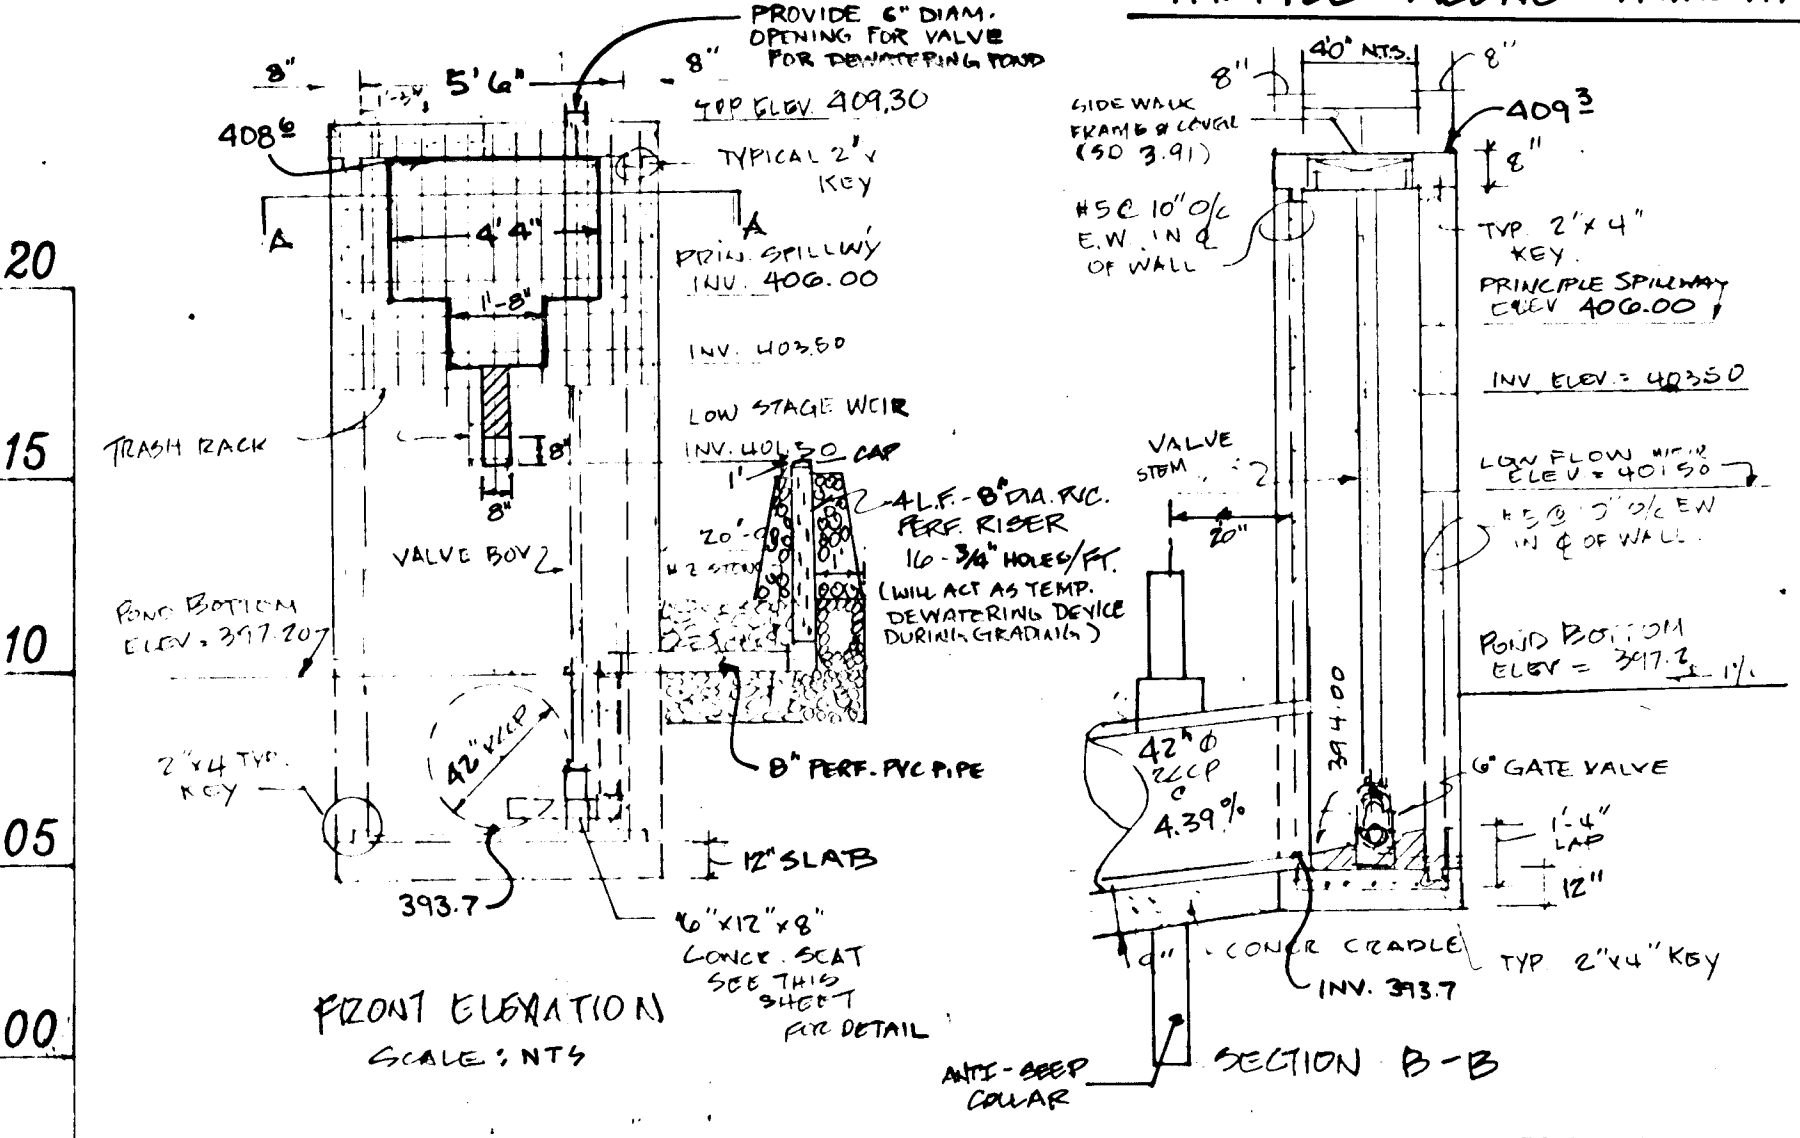 PROVIDE 6" DIAM.
OPENING FOR VALVE
FOR DEWATERING POND
8"
5' 6"
8"
TOP ELEV. 409.30
408 6
TYPICAL 2" x
KEY
A
A
4' 4"
PRIN. SPILLWY
INV. 406.00
1'-8"
INV. 403.50
LOW STAGE WEIR
INV. 401.50
CAP
TRASH RACK
8"
8"
1'
4 L.F. - 8" DIA. PVC.
PERF. RISER
16 - 3/4" HOLES/FT.
(WILL ACT AS TEMP.
DEWATERING DEVICE
DURING GRADING)
#2 STONE
VALVE BOX
POND BOTTOM
ELEV. 397.20
42" RCCP
8" PERF. PVC PIPE
2"x4 TYP.
KEY
12" SLAB
393.7
6"x12"x8"
CONCR. SEAT
SEE THIS
SHEET
FOR DETAIL
FRONT ELEVATION
SCALE: NTS
20
15
10
05
00
4'0" N.T.S.
8"
8"
SIDEWALK
FRAME & COVER
(SD 3.91)
409 3
8"
#5 @ 10" O/C
E.W. IN ℄
OF WALL
TYP. 2" x 4"
KEY.
PRINCIPLE SPILLWAY
ELEV 406.00
INV ELEV. = 403.50
VALVE
STEM
LOW FLOW WEIR
ELEV = 401.50
20"
O/C EW
IN ℄ OF WALL.
POND BOTTOM
ELEV = 397.2
1%
394.00
42" Ø
RCCP
@
4.39%
6" GATE VALVE
1'-4"
LAP
12"
CONCR CRADLE
TYP. 2"x4" KEY
INV. 393.7
ANTI-SEEP
COLLAR
SECTION B-B